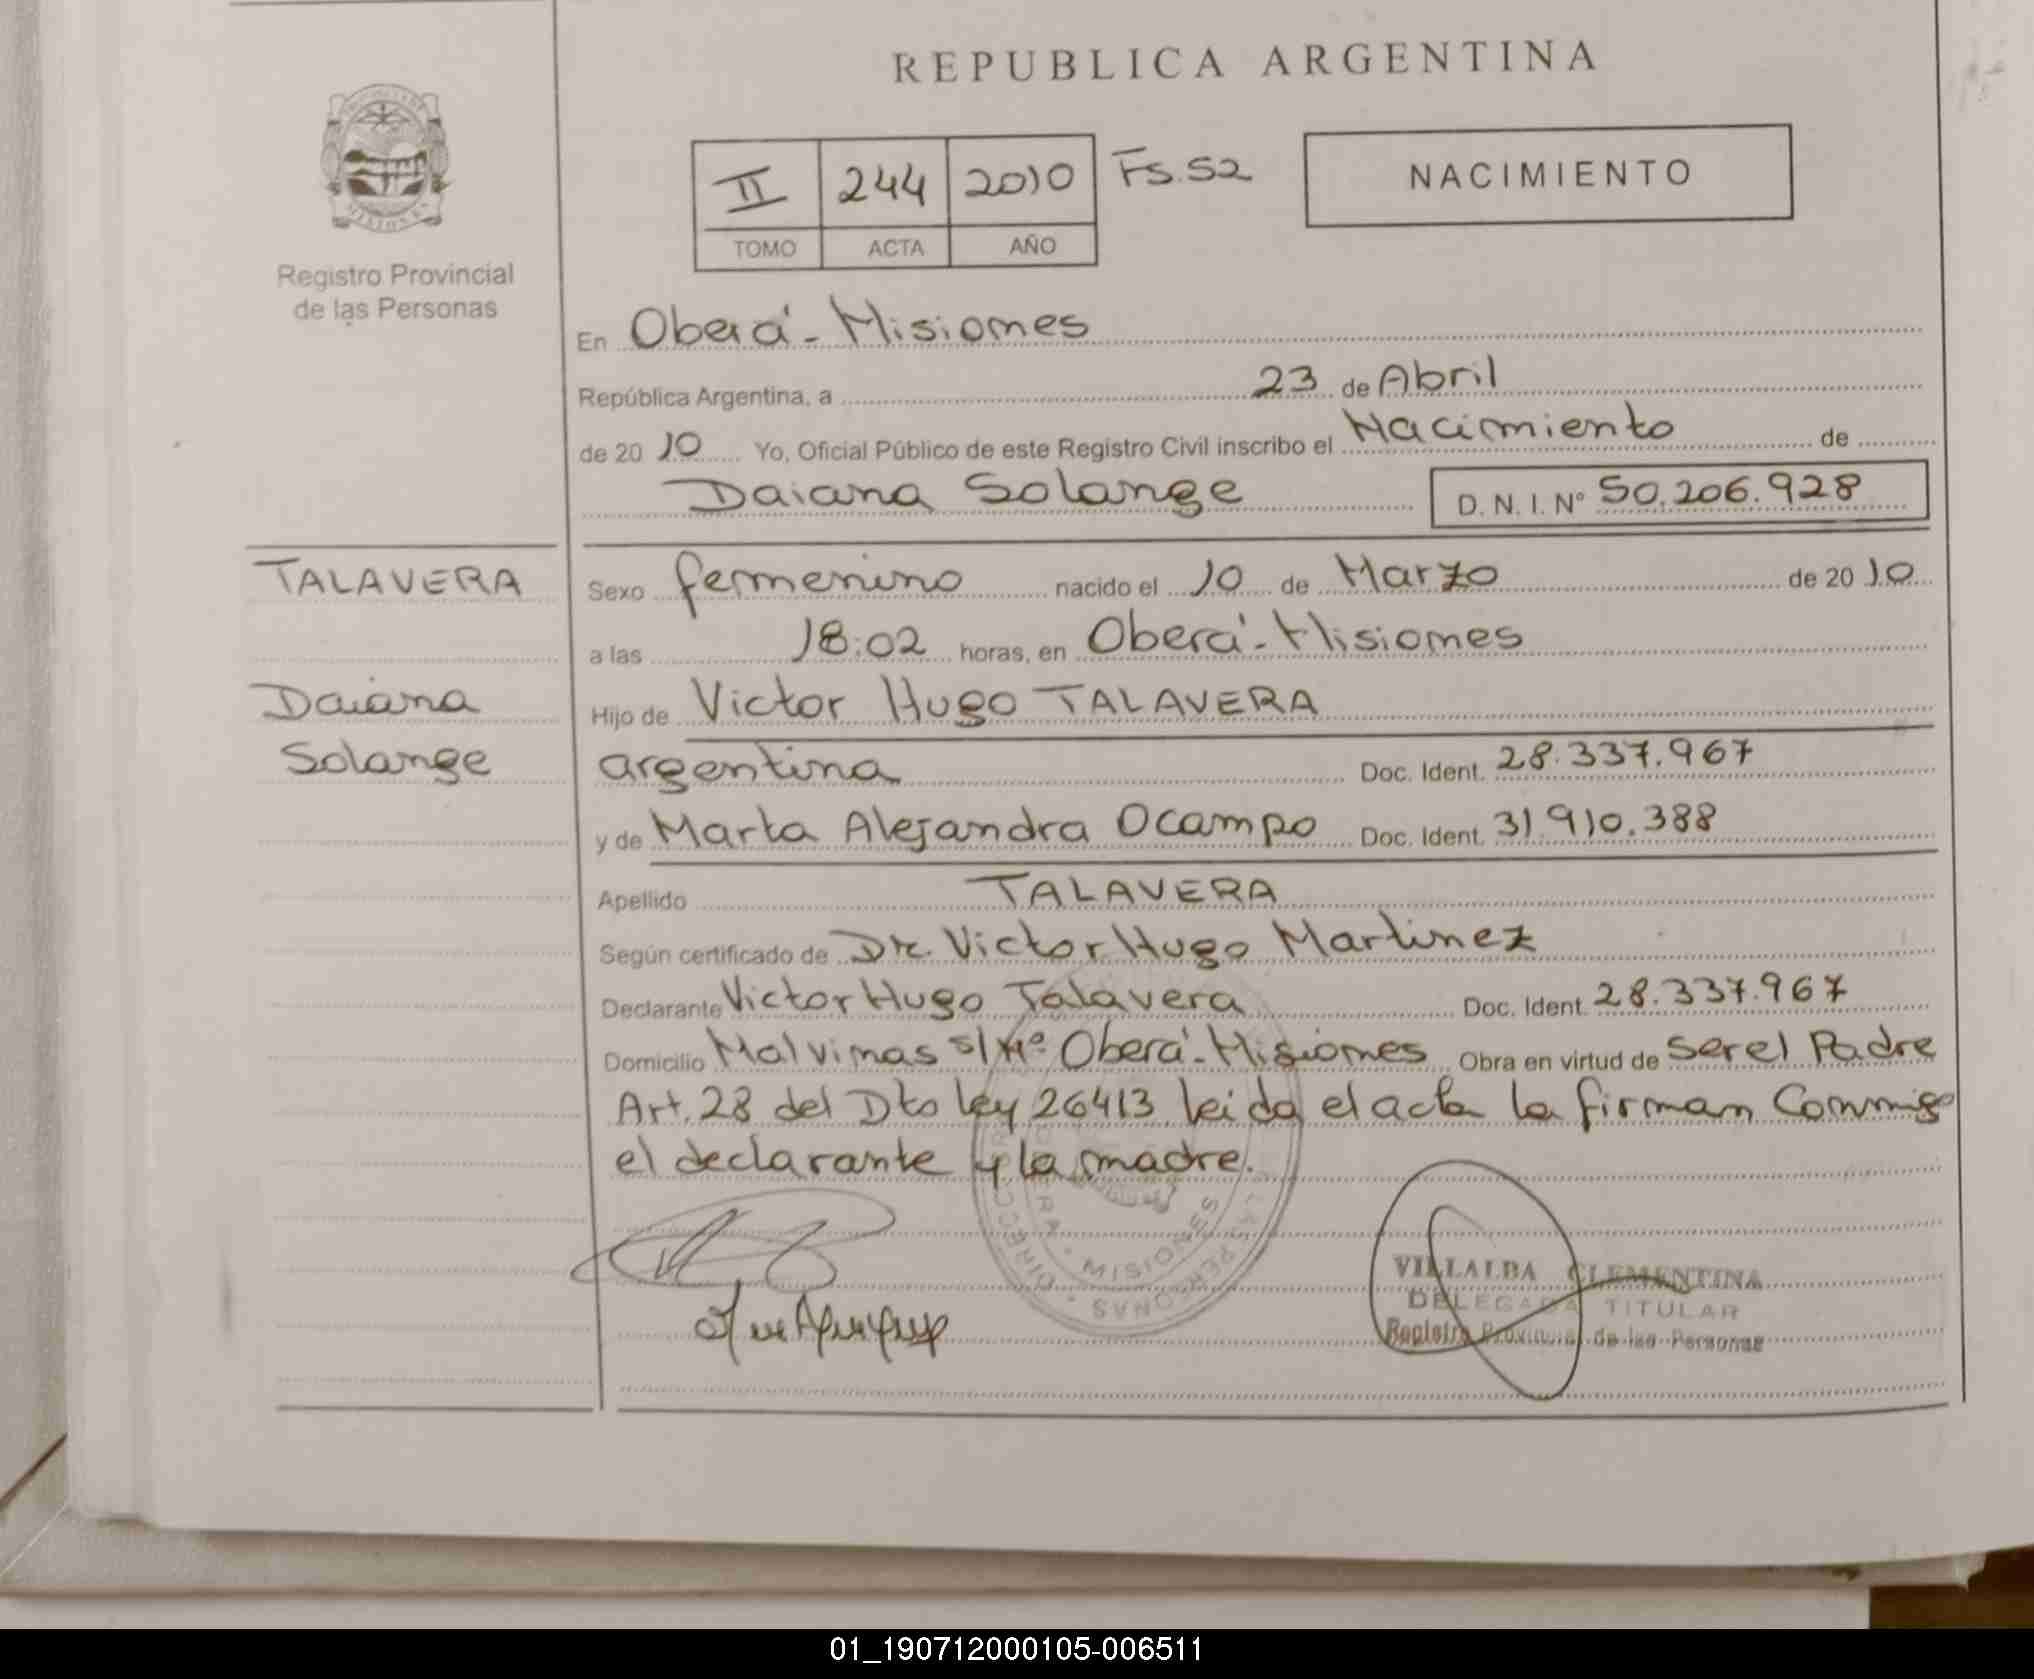 REPUBLICA ARGENTINA
II 244 2010 Fs. 52
TOMO ACTA AÑO
NACIMIENTO
MISIONES
Registro Provincial
de las Personas
En Oberá - Misiones
República Argentina, a 23 de Abril
de 20 10 Yo, Oficial Público de este Registro Civil inscribo el Nacimiento de
Daiana Solange D. N. I. Nº 50.206.928
TALAVERA
Daiana
Solange
Sexo femenino nacido el 10 de Marzo de 20 10
a las 18:02 horas, en Oberá - Misiones
Hijo de Victor Hugo TALAVERA
argentina Doc. Ident. 28.337.967
y de Marta Alejandra Ocampo Doc. Ident. 31.910.388
Apellido TALAVERA
Según certificado de Dr. Victor Hugo Martinez
Declarante Victor Hugo Talavera Doc. Ident. 28.337.967
Domicilio Malvinas s/Nº Oberá - Misiones Obra en virtud de Ser el Padre
Art. 28 del Dto ley 26413 leida el acta la firman Conmigo
el declarante y la madre.
MISIONES
VILLALBA CLEMENTINA
DELEGADA TITULAR
Registro Provincial de las Personas
01_190712000105-006511